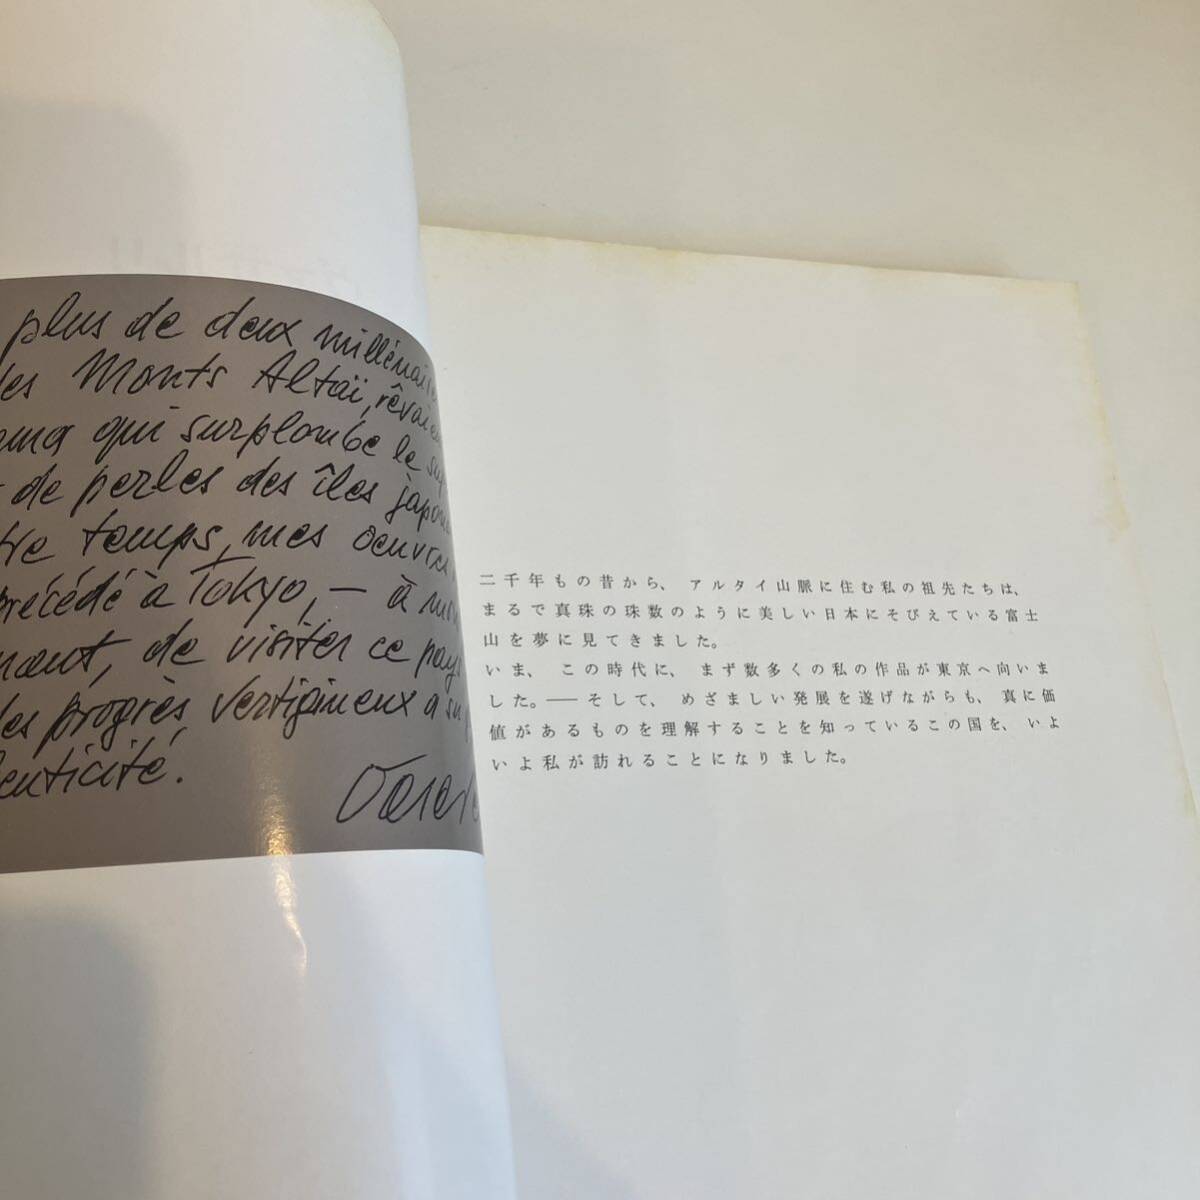 plus de deux
des Monts Altaï,
qui surplombe le
de perles des îles
temps, mes oeuvres
précédé à Tokyo, — à
de visiter ce pays
des progrès vertigineux a
二千年もの昔から、アルタイ山脈に住む私の祖先たちは、
まるで真珠の珠数のように美しい日本にそびえている富士
山を夢に見てきました。
いま、この時代に、まず数多くの私の作品が東京へ向いま
した。——そして、めざましい発展を遂げながらも、真に価
値があるものを理解することを知っているこの国を、いよ
いよ私が訪れることになりました。